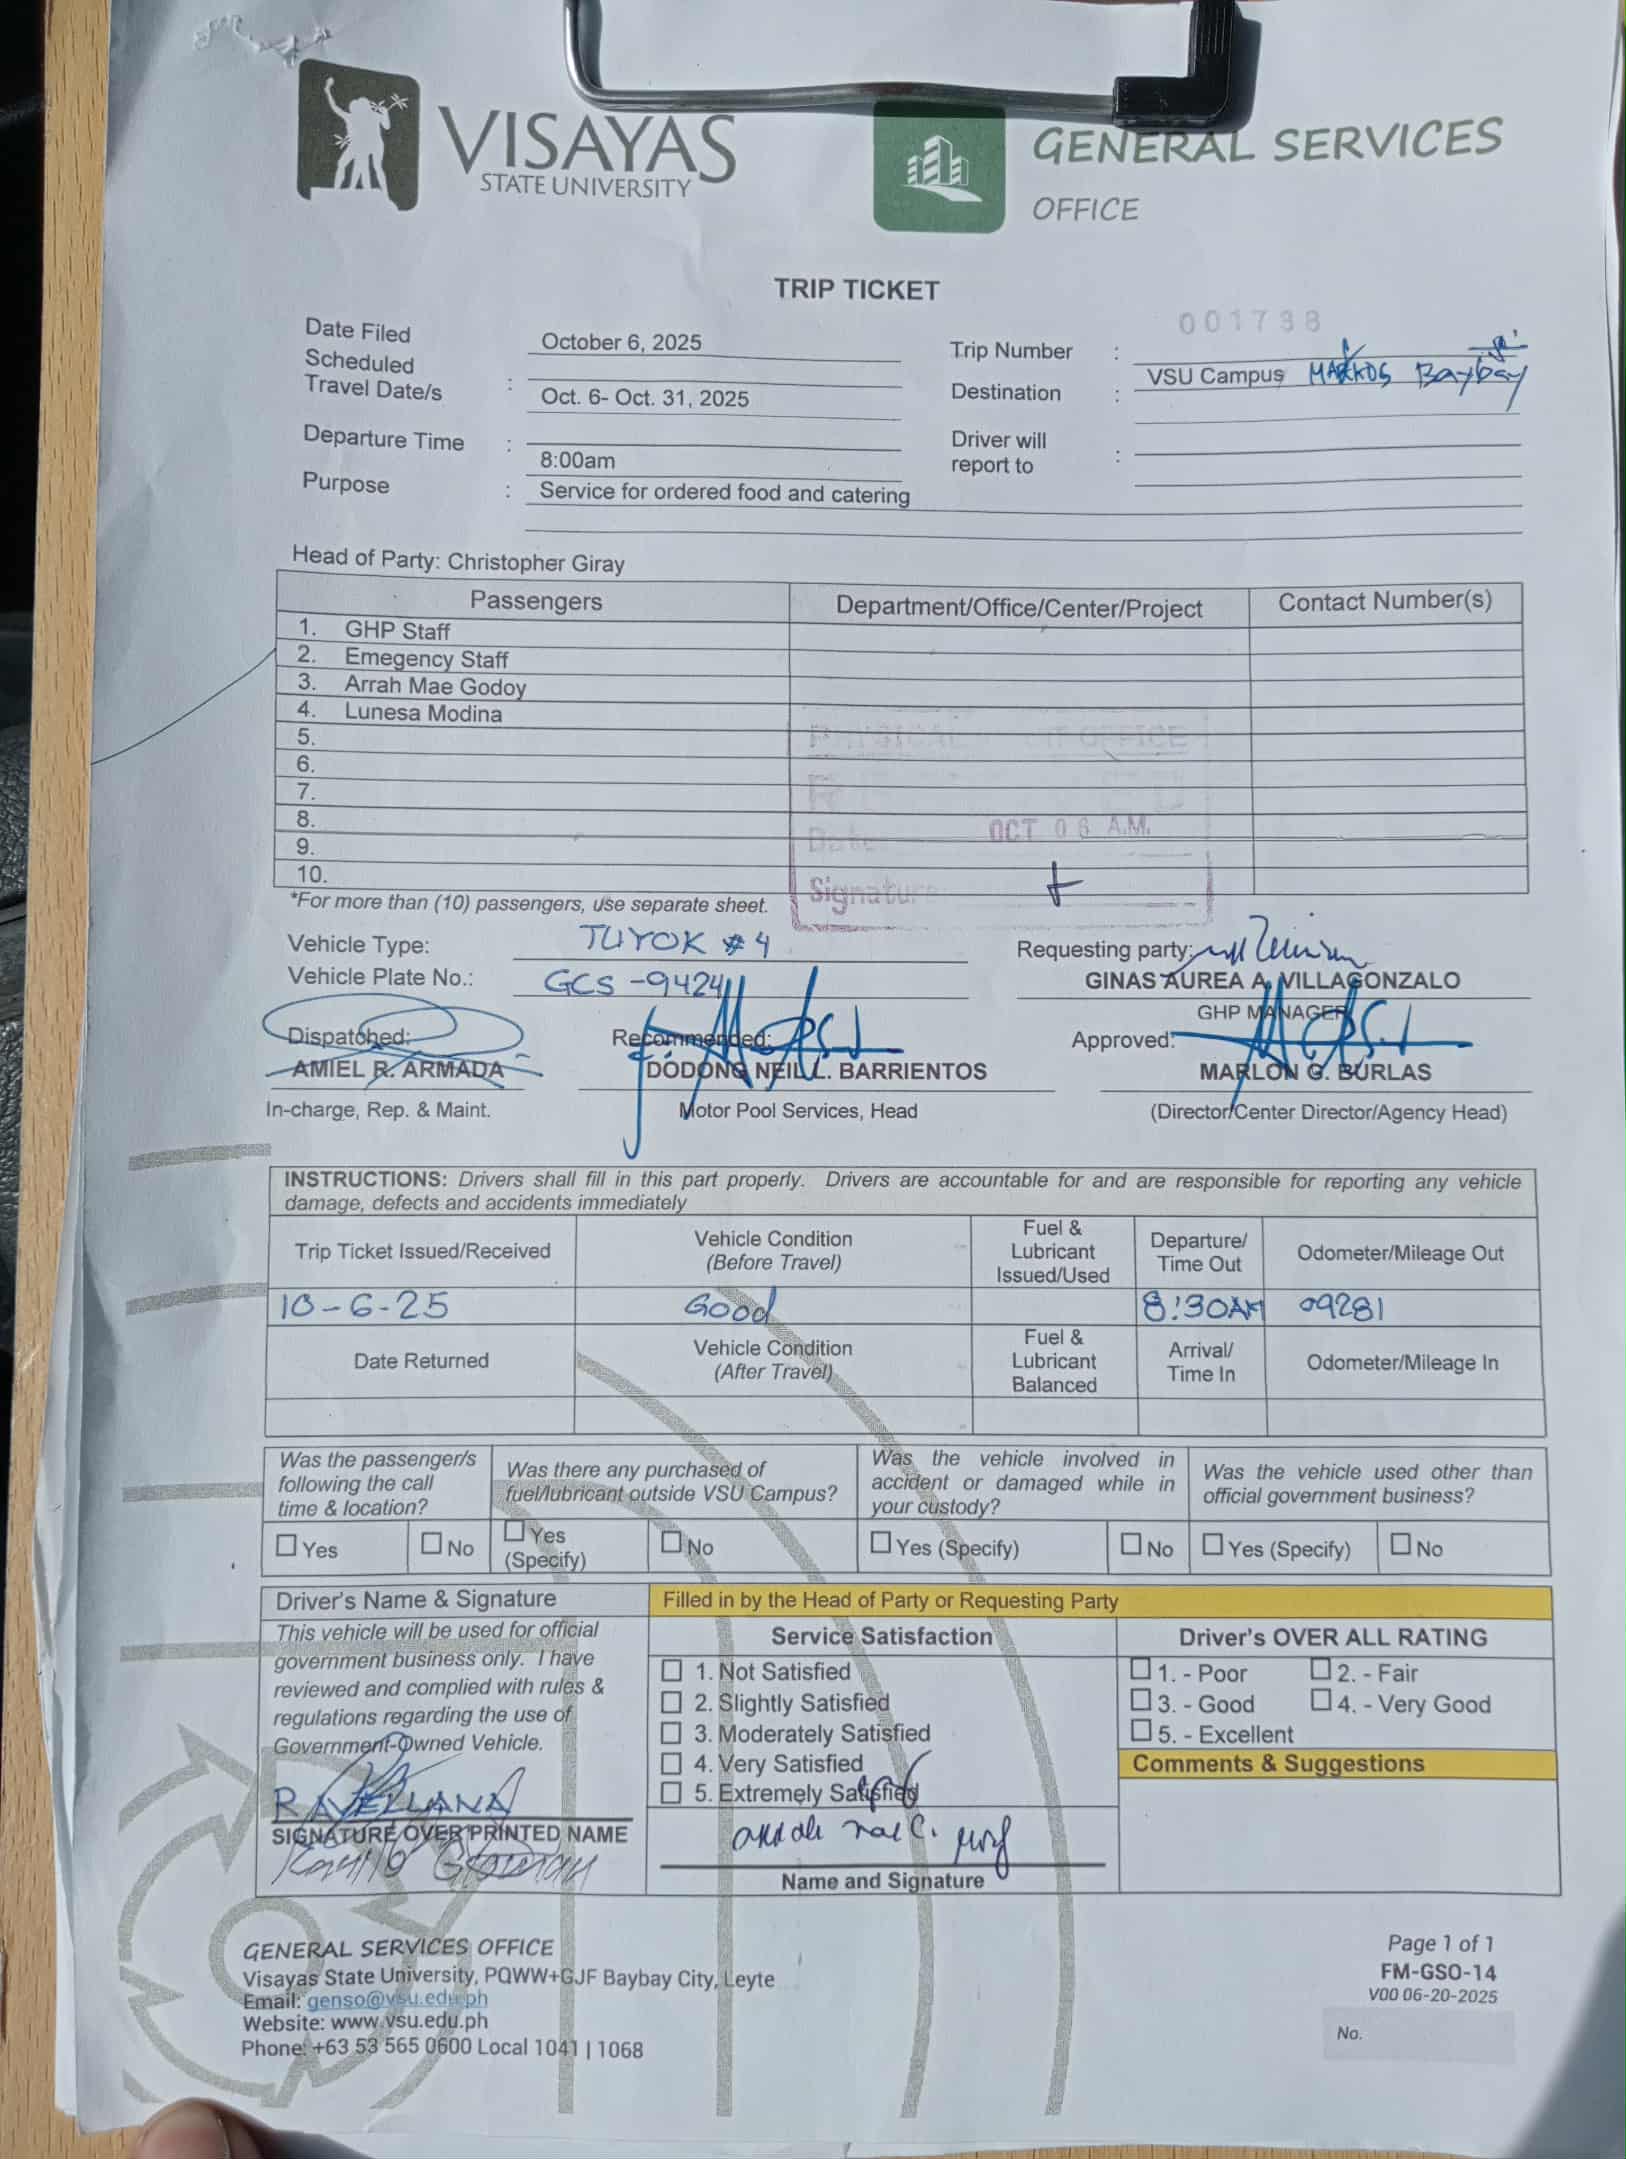 VISAYAS
STATE UNIVERSITY
GENERAL SERVICES
OFFICE
TRIP TICKET
001738
Date Filed October 6, 2025
Trip Number :
Scheduled
Travel Date/s : Oct. 6- Oct. 31, 2025
Destination : VSU Campus MARKOS Baybay
Departure Time : 8:00am
Driver will
report to :
Purpose : Service for ordered food and catering
Head of Party: Christopher Giray
Passengers Department/Office/Center/Project Contact Number(s)
1. GHP Staff
2. Emegency Staff
3. Arrah Mae Godoy
4. Lunesa Modina
5.
6.
7.
8.
9.
10.
PHYSICAL OFFICE
Date OCT 06 A.M.
Signature
*For more than (10) passengers, use separate sheet.
Vehicle Type: TUYOK #4
Requesting party:
Vehicle Plate No.: GCS-9424
GINAS AUREA A. VILLAGONZALO
GHP MANAGER
Dispatched: Recommended: Approved:
AMIEL R. ARMADA DODONG NEIL L. BARRIENTOS MARLON G. BURLAS
In-charge, Rep. & Maint. Motor Pool Services, Head (Director/Center Director/Agency Head)
INSTRUCTIONS: Drivers shall fill in this part properly. Drivers are accountable for and are responsible for reporting any vehicle
damage, defects and accidents immediately
Trip Ticket Issued/Received Vehicle Condition (Before Travel) Fuel & Lubricant Issued/Used Departure/ Time Out Odometer/Mileage Out
10-6-25 Good 8:30AM 09281
Date Returned Vehicle Condition (After Travel) Fuel & Lubricant Balanced Arrival/ Time In Odometer/Mileage In
Was the passenger/s following the call time & location?
Was there any purchased of fuel/lubricant outside VSU Campus?
Was the vehicle involved in accident or damaged while in your custody?
Was the vehicle used other than official government business?
Yes No Yes (Specify) No Yes (Specify) No Yes (Specify) No
Driver's Name & Signature
This vehicle will be used for official
government business only. I have
reviewed and complied with rules &
regulations regarding the use of
Government-Owned Vehicle.
R AVELLANA
SIGNATURE OVER PRINTED NAME
Filled in by the Head of Party or Requesting Party
Service Satisfaction
1. Not Satisfied
2. Slightly Satisfied
3. Moderately Satisfied
4. Very Satisfied
5. Extremely Satisfied
Name and Signature
Driver's OVER ALL RATING
1. - Poor 2. - Fair
3. - Good 4. - Very Good
5. - Excellent
Comments & Suggestions
GENERAL SERVICES OFFICE
Visayas State University, PQWW+GJF Baybay City, Leyte
Email: genso@vsu.edu.ph
Website: www.vsu.edu.ph
Phone: +63 53 565 0600 Local 1041 | 1068
Page 1 of 1
FM-GSO-14
V00 06-20-2025
No.